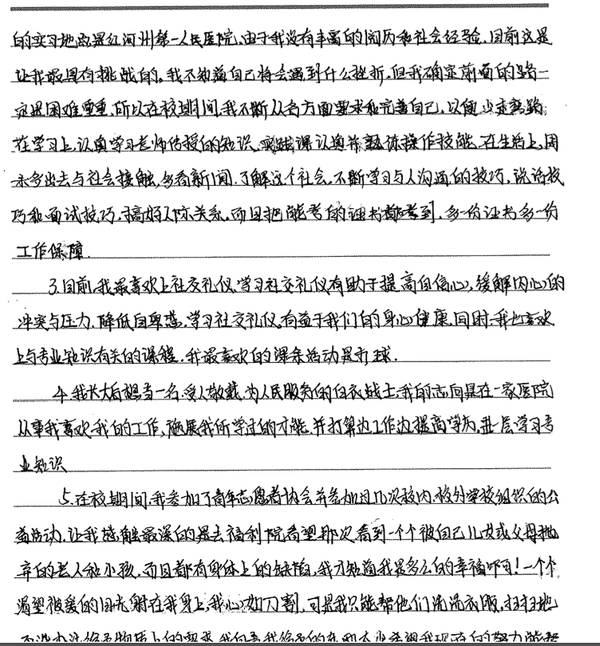 的实习地点是红河州第一人民医院,由于我没有丰富的阅历和社会经验,目前这是
让我最具有挑战的,我不知道自己将会遇到什么挫折,但我确定前面的路一
定是困难重重,所以在校期间,我不断从各方面要求和完善自己,以便少走弯路
在学习上,认真学习老师传授的知识,实践课认真并熟练操作技能,在生活上,周
末多出去与社会接触,多看新闻,了解这个社会,不断学习与人沟通的技巧,说话技
巧和面试技巧,搞好人际关系,而且把能考的证书都考到,多一份证书多一份
工作保障.
3.目前,我最喜欢上社交礼仪,学习社交礼仪有助于提高自信心,缓解内心的
冲突与压力,降低自卑感,学习社交礼仪有益于我们的身心健康,同时,我也喜欢
上与专业知识有关的课程,我最喜欢的课余活动是打球.
4.我长大后想当一名受人敬戴,为人民服务的白衣战士,我的志向是在一家医院
从事我喜欢我的工作,施展我所学过的才能,并打算边工作边提高学历,进一层学习专
业知识
5.在校期间,我参加了青年志愿者协会并参加过几次校内,校外学校组织的公
益活动,让我感触最深的是去福利院看望那次,看到一个个被自己儿女或父母抛
弃的老人和小孩,而且都有身体上的缺陷,我才知道我是多么的幸福啊!一个个
渴望被爱的目光射在我身上,我心如刀割,可是我只能帮他们洗洗衣服,扫扫地